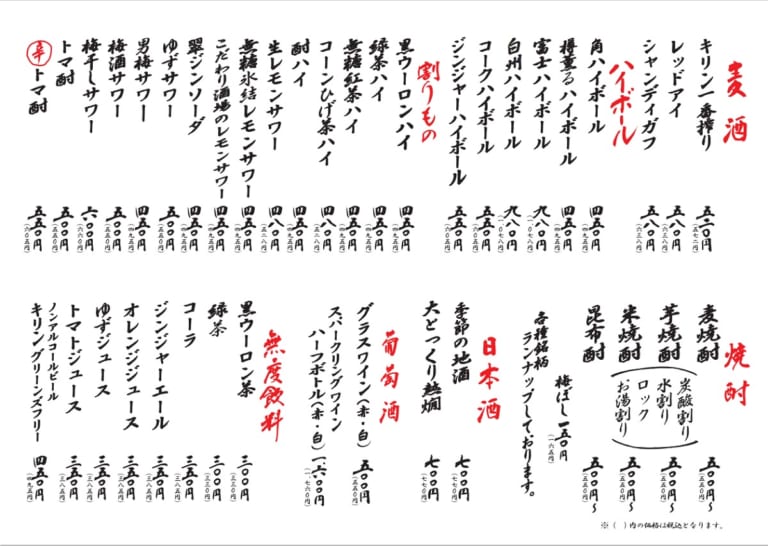 麦酒
キリン一番搾り 五二〇円(五七二円)
レッドアイ 五八〇円(六三八円)
シャンディガフ 五八〇円(六三八円)
ハイボール
角ハイボール 四五〇円(四九五円)
樽薫るハイボール 四五〇円(四九五円)
富士ハイボール 九八〇円(一〇七八円)
白州ハイボール 九八〇円(一〇七八円)
コークハイボール 五五〇円(六〇五円)
ジンジャーハイボール 五五〇円(六〇五円)
割りもの
黒ウーロンハイ 四五〇円(四九五円)
緑茶ハイ 四五〇円(四九五円)
無糖紅茶ハイ 四五〇円(四九五円)
コーンひげ茶ハイ 四八〇円(五二八円)
酎ハイ 四五〇円(四九五円)
生レモンサワー 四八〇円(五二八円)
無糖氷結レモンサワー 四五〇円(四九五円)
こだわり酒場のレモンサワー 四五〇円(四九五円)
翠ジンソーダ 四五〇円(四九五円)
ゆずサワー 五〇〇円(五五〇円)
男梅サワー 四五〇円(四九五円)
梅酒サワー 五〇〇円(五五〇円)
梅干しサワー 六〇〇円(六六〇円)
トマト酎 五〇〇円(五五〇円)
辛トマト酎 五五〇円(六〇五円)
焼酎
麦焼酎 五〇〇円〜(五五〇円)
芋焼酎 五〇〇円〜(五五〇円)
米焼酎 五〇〇円〜(五五〇円)
昆布酎 五〇〇円〜(五五〇円)
(炭酸割り
水割り
ロック
お湯割り)
梅ぼし 一五〇円(一六五円)
各種銘柄
ランナップしております。
日本酒
季節の地酒 七〇〇円(七七〇円)
大とっくり熱燗 七〇〇円(七七〇円)
葡萄酒
グラスワイン(赤・白) 五〇〇円(五五〇円)
スパークリングワイン
ハーフボトル(赤・白) 一六〇〇円(一七六〇円)
無度飲料
黒ウーロン茶 三〇〇円(三三〇円)
緑茶 三〇〇円(三三〇円)
コーラ 三五〇円(三八五円)
ジンジャーエール 三五〇円(三八五円)
オレンジジュース 三五〇円(三八五円)
ゆずジュース 三五〇円(三八五円)
トマトジュース 三五〇円(三八五円)
ノンアルコールビール
キリングリーンズフリー 四五〇円(四九五円)
※( )内の価格は税込となります。